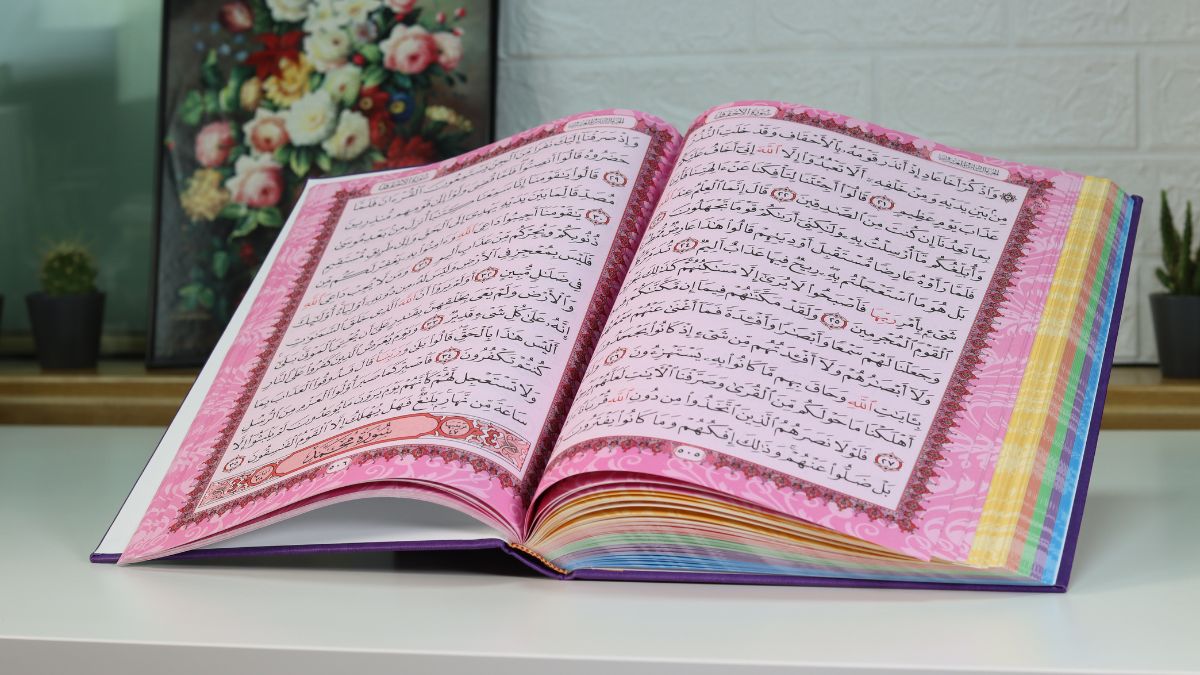 سُورَةُ الْأَحْقَافِ
۞ وَاذْكُرْ أَخَا عَادٍ إِذْ أَنذَرَ قَوْمَهُ بِالْأَحْقَافِ وَقَدْ خَلَتِ النُّذُرُ
مِنْ بَيْنِ يَدَيْهِ وَمِنْ خَلْفِهِ أَلَّا تَعْبُدُوا إِلَّا اللَّهَ إِنِّي أَخَافُ عَلَيْكُمْ
عَذَابَ يَوْمٍ عَظِيمٍ ٢١ قَالُوا أَجِئْتَنَا لِتَأْفِكَنَا عَنْ ءَالِهَتِنَا
بِمَا تَعِدُنَا إِن كُنتَ مِنَ الصَّادِقِينَ ٢٢ قَالَ إِنَّمَا الْعِلْمُ عِندَ
وَأُبَلِّغُكُم مَّا أُرْسِلْتُ بِهِ وَلَٰكِنِّي أَرَىٰكُمْ قَوْمًا تَجْهَلُونَ
فَلَمَّا رَأَوْهُ عَارِضًا مُّسْتَقْبِلَ أَوْدِيَتِهِمْ قَالُوا هَٰذَا عَارِضٌ
بَلْ هُوَ مَا اسْتَعْجَلْتُم بِهِ رِيحٌ فِيهَا عَذَابٌ أَلِيمٌ ٢٤
شَيْءٍ بِأَمْرِ رَبِّهَا فَأَصْبَحُوا لَا يُرَىٰ إِلَّا مَسَٰكِنُهُمْ كَذَٰلِكَ
الْقَوْمَ الْمُجْرِمِينَ ٢٥ وَلَقَدْ مَكَّنَّٰهُمْ فِيمَا إِن مَّكَّنَّٰكُمْ
وَجَعَلْنَا لَهُمْ سَمْعًا وَأَبْصَٰرًا وَأَفْئِدَةً فَمَا أَغْنَىٰ عَنْهُمْ
وَلَا أَبْصَٰرُهُمْ وَلَا أَفْئِدَتُهُم مِّن شَيْءٍ إِذْ كَانُوا
بِـَٔايَٰتِ اللَّهِ وَحَاقَ بِهِم مَّا كَانُوا بِهِ يَسْتَهْزِءُونَ ٢٦
أَهْلَكْنَا مَا حَوْلَكُم مِّنَ الْقُرَىٰ وَصَرَّفْنَا الْءَايَٰتِ لَعَلَّهُمْ
٢٧ فَلَوْلَا نَصَرَهُمُ الَّذِينَ اتَّخَذُوا مِن دُونِ اللَّهِ
بَلْ ضَلُّوا عَنْهُمْ وَذَٰلِكَ إِفْكُهُمْ وَمَا كَانُوا يَفْتَرُونَ
٥٠٥
سُورَةُ الْأَحْقَافِ
وَإِذْ صَرَفْنَا إِلَيْكَ نَفَرًا مِّنَ الْجِنِّ
حَضَرُوهُ قَالُوا أَنصِتُوا فَلَمَّا قُضِيَ وَلَّوْا إِلَىٰ قَوْمِهِم مُّنذِرِينَ
٢٩ قَالُوا يَٰقَوْمَنَا إِنَّا سَمِعْنَا كِتَٰبًا أُنزِلَ مِن بَعْدِ مُوسَىٰ
مُصَدِّقًا لِّمَا بَيْنَ يَدَيْهِ يَهْدِي إِلَى الْحَقِّ وَإِلَىٰ طَرِيقٍ مُّسْتَقِيمٍ
٣٠ يَٰقَوْمَنَا أَجِيبُوا دَاعِيَ اللَّهِ
ذُنُوبِكُمْ وَيُجِرْكُم مِّنْ عَذَابٍ أَلِيمٍ ٣١ وَمَن لَّا يُجِبْ دَاعِيَ اللَّهِ
فَلَيْسَ بِمُعْجِزٍ فِي الْأَرْضِ وَلَيْسَ لَهُ مِن دُونِهِ أَوْلِيَاءُ أُولَٰئِكَ
فِي ضَلَٰلٍ مُّبِينٍ ٣٢ أَوَلَمْ يَرَوْا أَنَّ اللَّهَ الَّذِي خَلَقَ السَّمَٰوَٰتِ
وَالْأَرْضَ وَلَمْ يَعْيَ بِخَلْقِهِنَّ بِقَٰدِرٍ عَلَىٰ أَن يُحْـِۧيَ الْمَوْتَىٰ بَلَىٰ
إِنَّهُ عَلَىٰ كُلِّ شَيْءٍ قَدِيرٌ ٣٣ وَيَوْمَ يُعْرَضُ الَّذِينَ كَفَرُوا عَلَى النَّارِ
أَلَيْسَ هَٰذَا بِالْحَقِّ قَالُوا بَلَىٰ وَرَبِّنَا قَالَ فَذُوقُوا الْعَذَابَ بِمَا
كُنتُمْ تَكْفُرُونَ ٣٤ فَاصْبِرْ كَمَا صَبَرَ أُولُوا الْعَزْمِ مِنَ الرُّسُلِ
وَلَا تَسْتَعْجِل لَّهُمْ كَأَنَّهُمْ يَوْمَ يَرَوْنَ مَا يُوعَدُونَ لَمْ يَلْبَثُوا إِلَّا
سَاعَةً مِّن نَّهَارٍ بَلَٰغٌ فَهَلْ يُهْلَكُ إِلَّا الْقَوْمُ الْفَٰسِقُونَ ٣٥
سُورَةُ مُحَمَّدٍ
٥٠٦